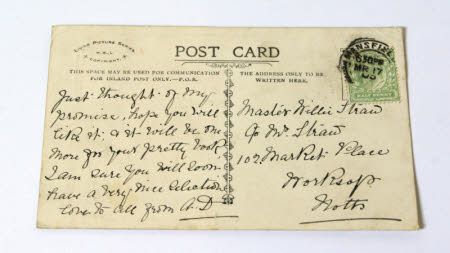 LIVING PICTURE SERIES
COPYRIGHT.
POST CARD
THIS SPACE MAY BE USED FOR COMMUNICATION
FOR INLAND POST ONLY.—P.O.R.
THE ADDRESS ONLY TO BE
WRITTEN HERE.
MANSFIELD
5 30PM
17
Just thought of my
promise, hope you will
like it. & it will be one
more for your pretty book.
I am sure you will soon
have a very nice selection
love to all from A.D
Master Willie Straw
c/o Mr. Straw
102 Market Place
Worksop
Notts